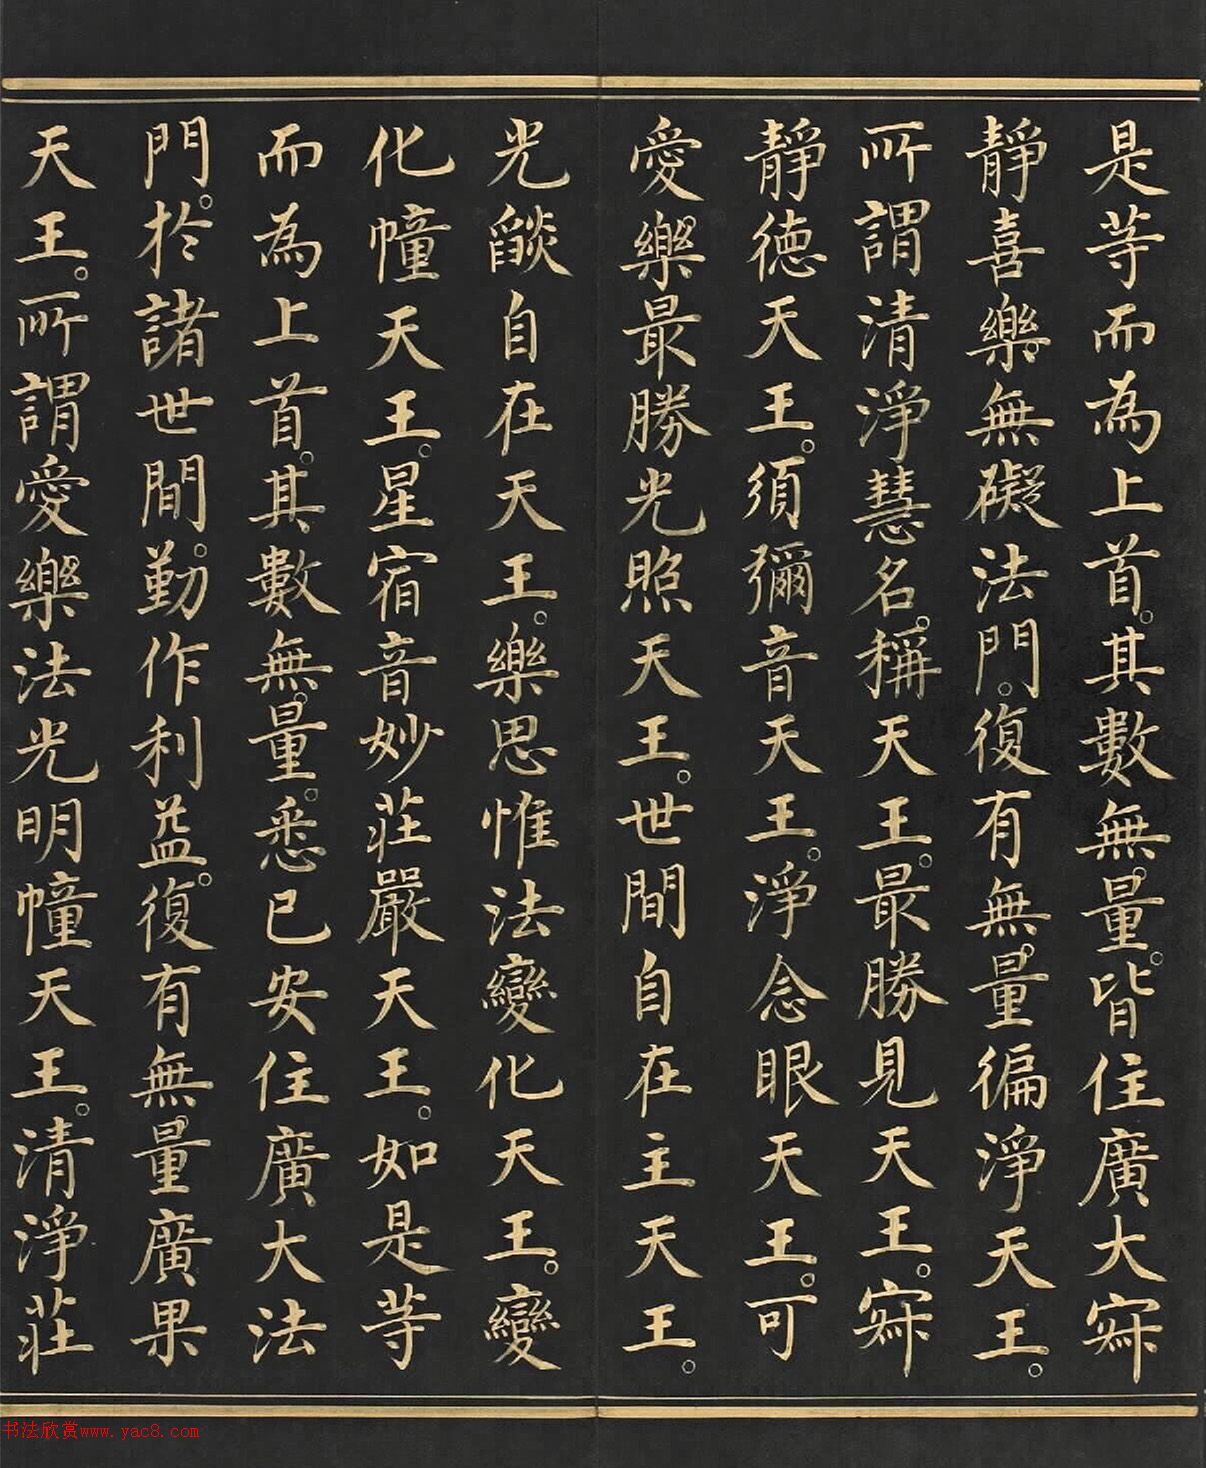 是等而為上首。其數無量。皆住廣大寂
靜喜樂無礙法門。復有無量徧淨天王。
所謂清淨慧名稱天王。最勝見天王。寂
靜德天王。須彌音天王。淨念眼天王。可
愛樂最勝光照天王。世間自在主天王。
光燄自在天王。樂思惟法變化天王。變
化幢天王。星宿音妙莊嚴天王。如是等
而為上首。其數無量。悉已安住廣大法
門。於諸世間。勤作利益。復有無量廣果
天王。所謂愛樂法光明幢天王。清淨莊
书法欣赏www.yac8.com